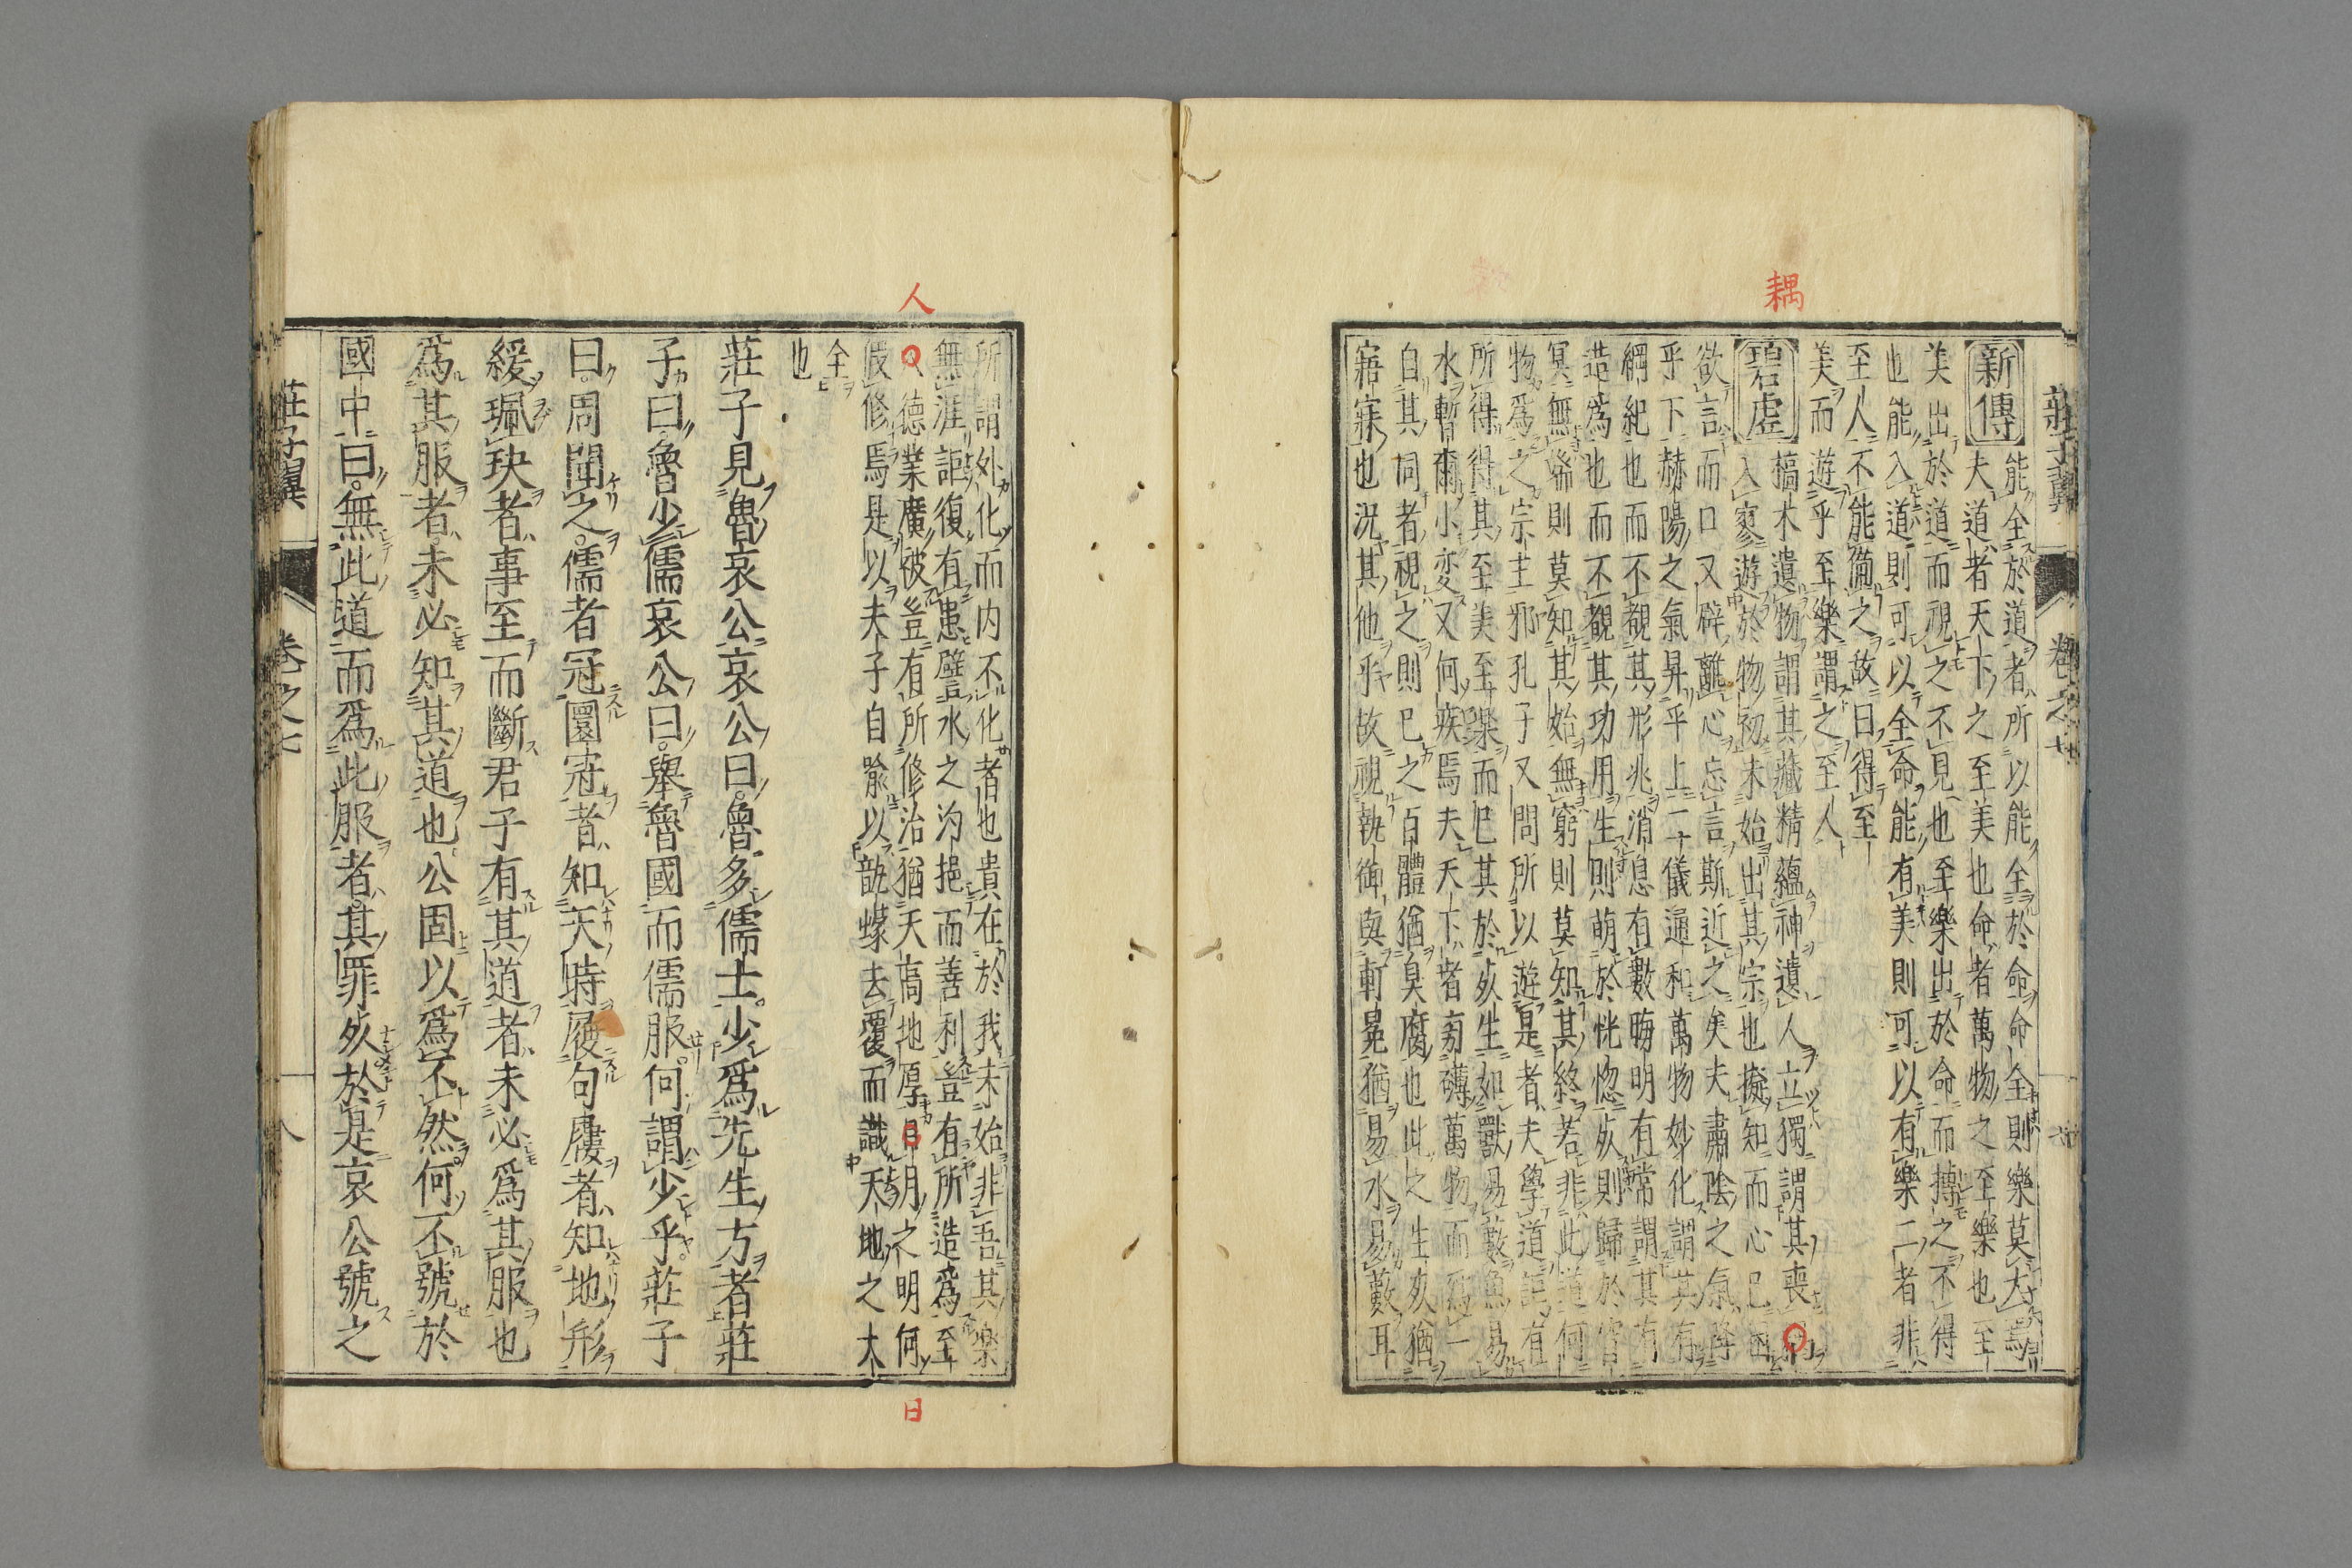 耦
莊子翼 卷之七
新傳 能全於道者所以能全於命命全則樂莫大焉
夫道者天下之至美也命者萬物之至樂也至
美出於道而視之不見也至樂出於命而摶之不得
也能入道則可以全命能有美則可以有樂二者非
至人不能備之故曰得至
美而遊乎至樂謂之至人
碧虛 槁木遺物謂其藏精蘊神遺人立獨謂其喪
入寥遊於物初未始出其宗也擬知而心已困
欲言而口又辟離心忘言斯近之矣夫肅陰之氣降
乎下赫陽之氣昇乎上二儀通和萬物妙化謂其有
綱紀也而不覩其形兆消息有數晦明有常謂其有
造爲也而不覩其功用生則萌於恍惚死則歸於窅
冥無端則莫知其始無窮則莫知其終若非此道何
物爲之宗主邪孔子又問所以遊是者夫學道有
所得得其至美至樂而已其於死生如獸易藪魚易
水暫爾小変又何疾焉夫天下者旁礴萬物而爲一
自其同者視之則已之百體猶臭腐也此之生死猶
寤寐也況其他乎故視執御與軒冕猶易水易藪耳
人
所謂外化而内不化者也貴在於我未始非吾其樂
無涯詎復有患譬水之汋挹而善利豈有所造爲至
人德業廣被豈有所修治猶天高地厚日月之明何
假修焉是以夫子自喩以醯蠓去覆而識天地之大
全
也
日
莊子見魯哀公哀公曰魯多儒士少爲先生方者莊
子曰魯少儒哀公曰舉魯國而儒服何謂少乎莊子
曰周聞之儒者冠圜冠者知天時履句屨者知地形
緩珮玦者事至而斷君子有其道者未必爲其服也
爲其服者未必知其道也公固以爲不然何不號於
國中曰無此道而爲此服者其罪死於是哀公號之
莊子翼 卷之七 八